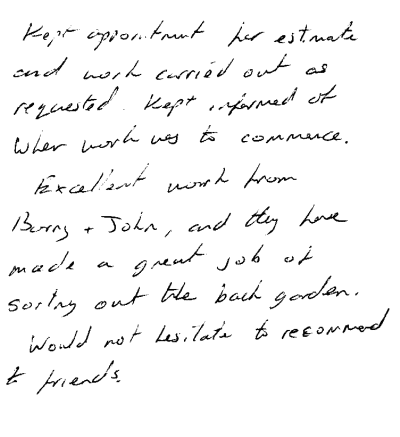 Kept appointment for estimate
and work carried out as
requested. Kept informed of
when work was to commence.
Excellent work from
Barry + John, and they have
made a great job of
sorting out the back garden.
Would not hesitate to recommend
to friends.